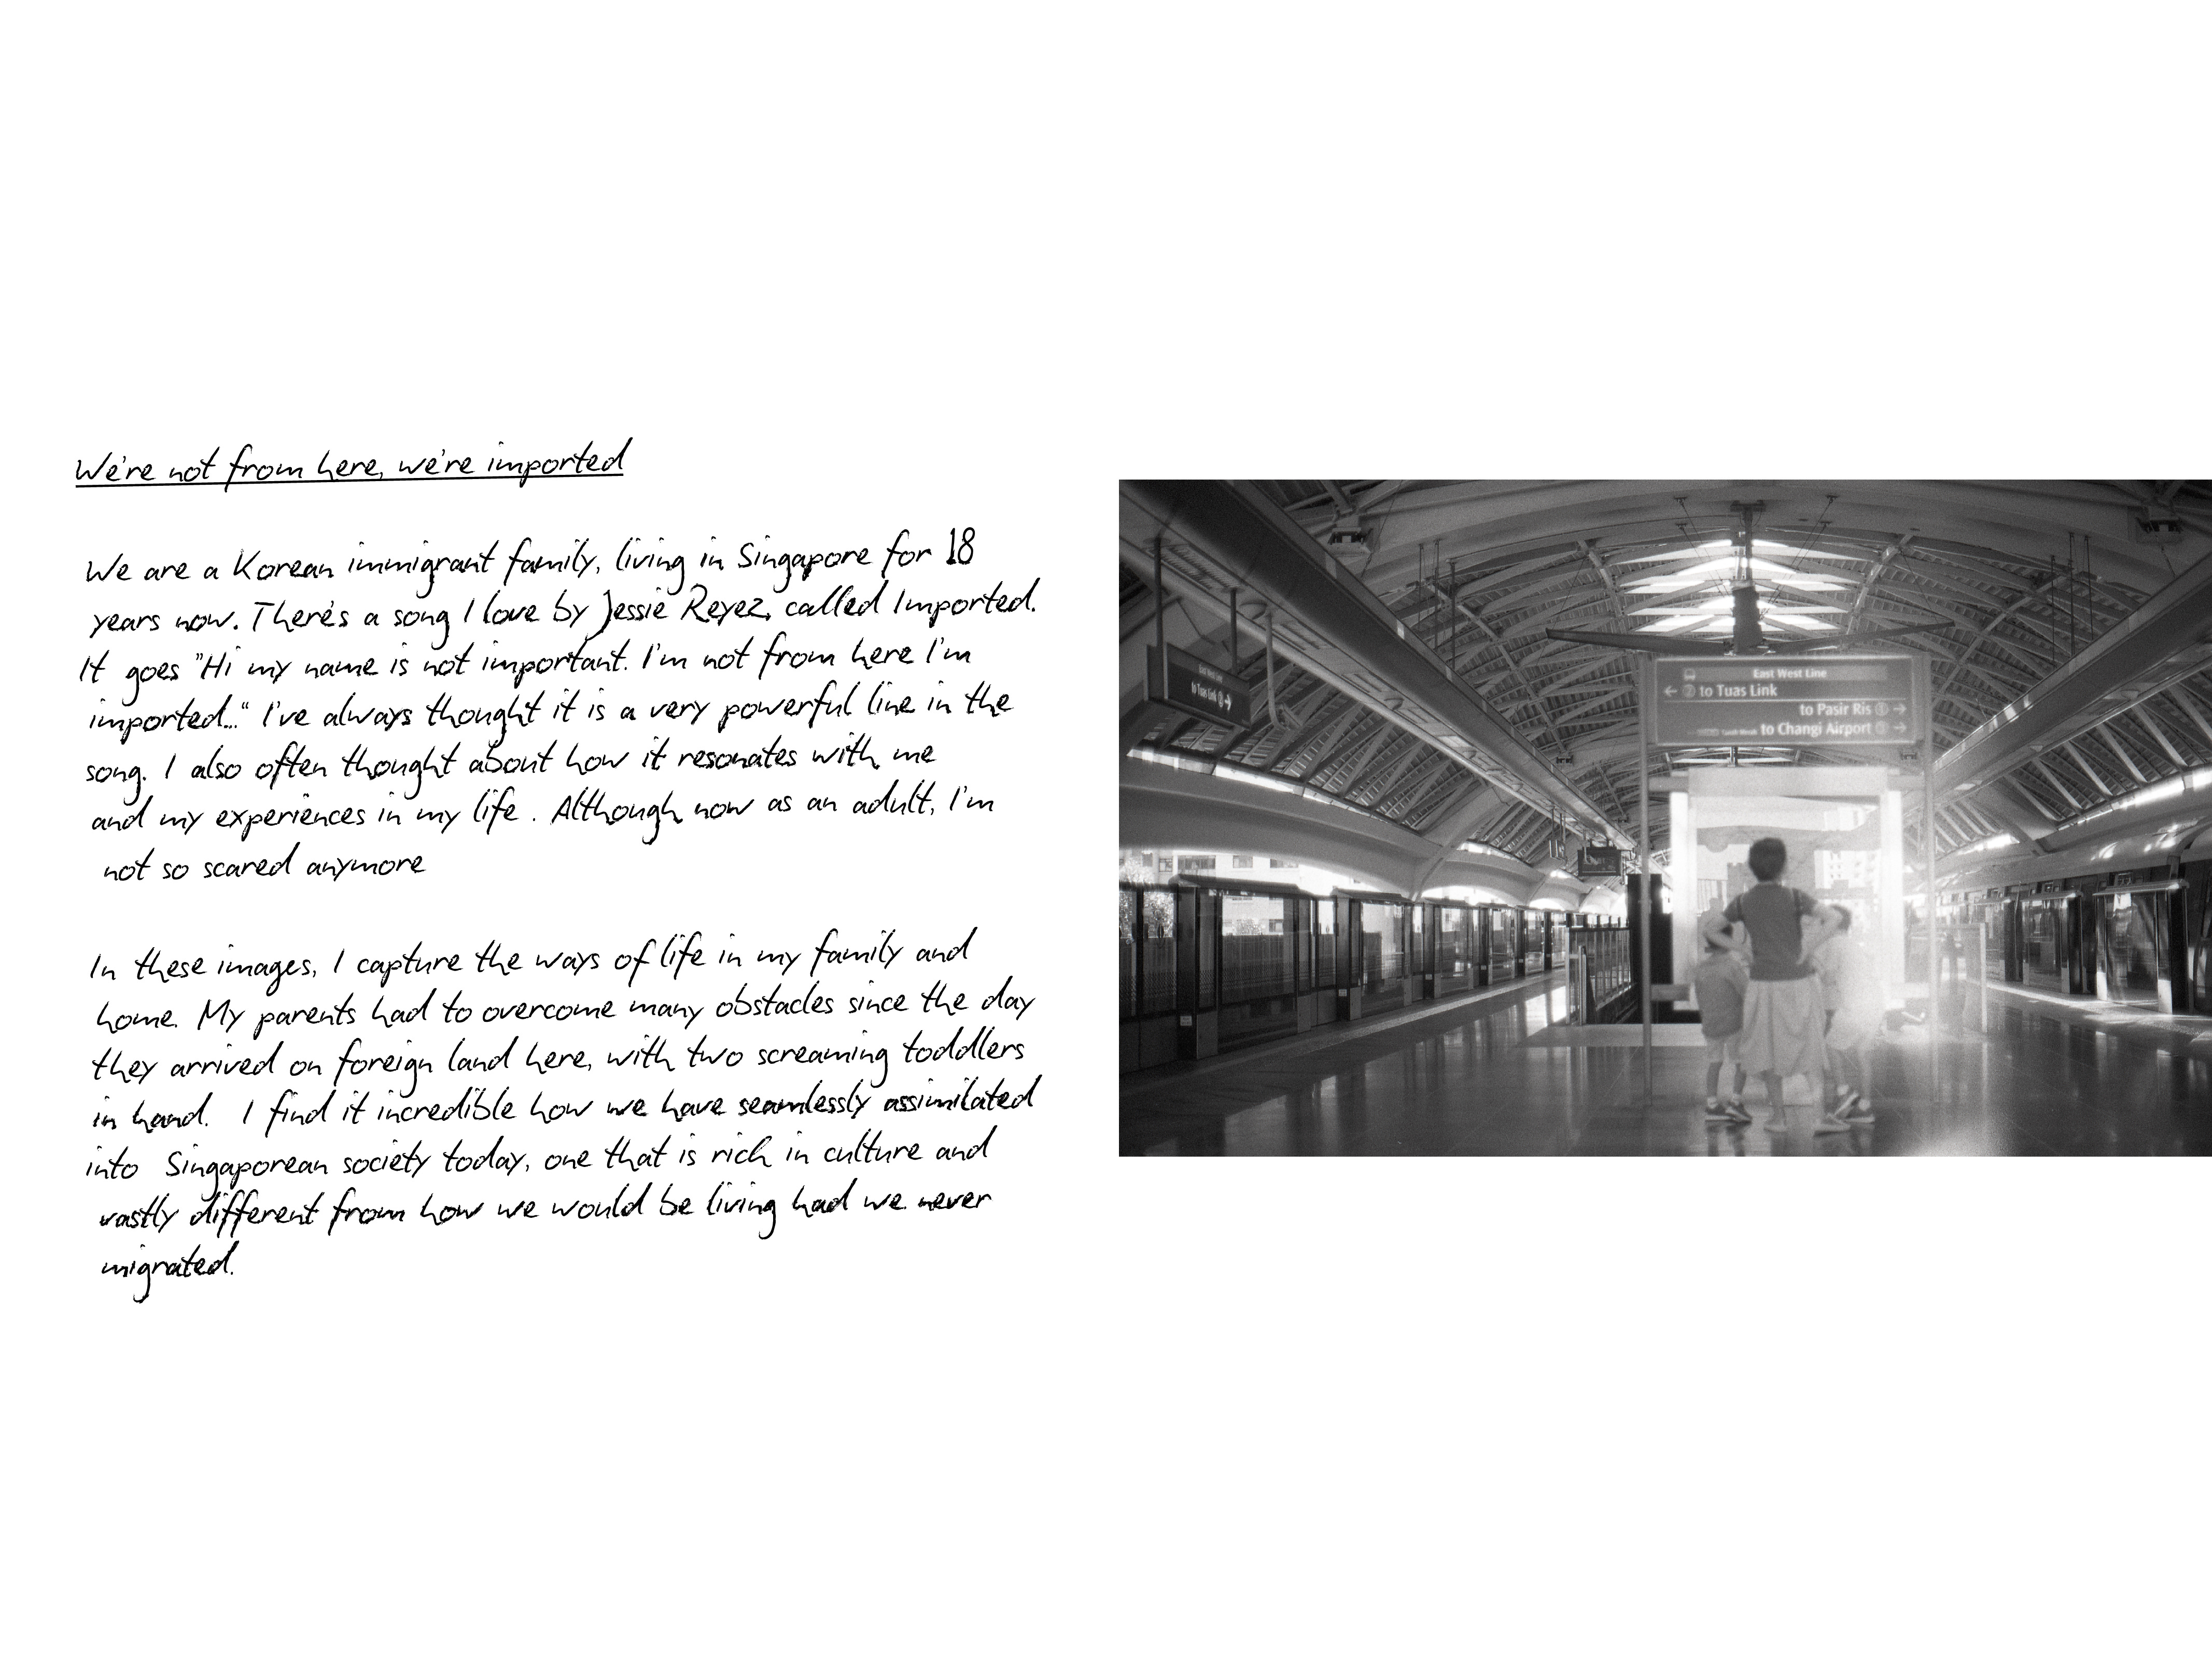 We're not from here, we're imported
We are a Korean immigrant family, living in Singapore for 18
years now. There's a song I love by Jessie Reyez, called Imported.
It goes "Hi my name is not important. I'm not from here I'm
imported..." I've always thought it is a very powerful line in the
song. I also often thought about how it resonates with me
and my experiences in my life. Although now as an adult, I'm
not so scared anymore
In these images, I capture the ways of life in my family and
home. My parents had to overcome many obstacles since the day
they arrived on foreign land here, with two screaming toddlers
in hand. I find it incredible how we have seamlessly assimilated
into Singaporean society today, one that is rich in culture and
vastly different from how we would be living had we never
migrated.
to Tuas Link
East West Line
← 2 to Tuas Link
to Pasir Ris 1 →
to Changi Airport →